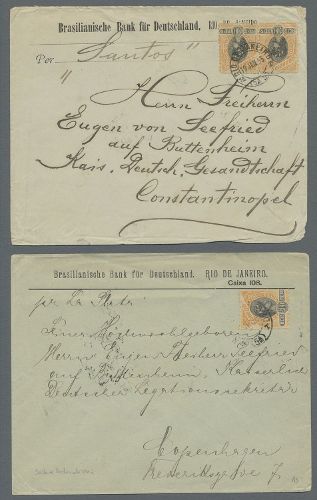 Brasilianische Bank für Deutschland.
Por "Santos"
Herrn Freiherrn
Eugen von Seefried
auf Buttenheim
Kais. Deutsch. Gesandtschaft
Constantinopel
Brasilianische Bank für Deutschland. RIO DE JANEIRO.
Caixa 108.
per La Plata
Seiner Hochwohlgeboren
Herrn Eugen Freiherr Seefried
auf Buttenheim, Kaiserlich
Deutscher Legationssekretär
Copenhagen